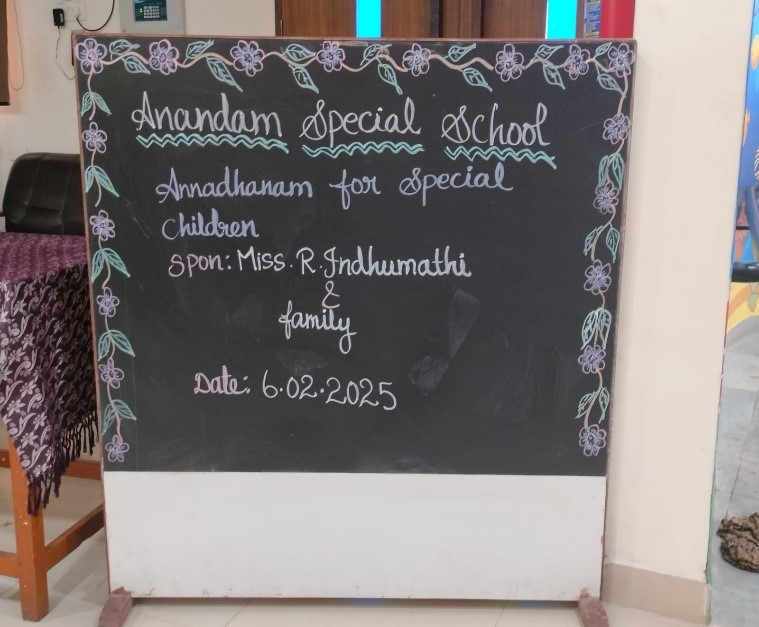 Anandam Special School
Annadhanam for Special
Children
Spon: Miss. R. Indhumathi
&
family
Date: 6.02.2025